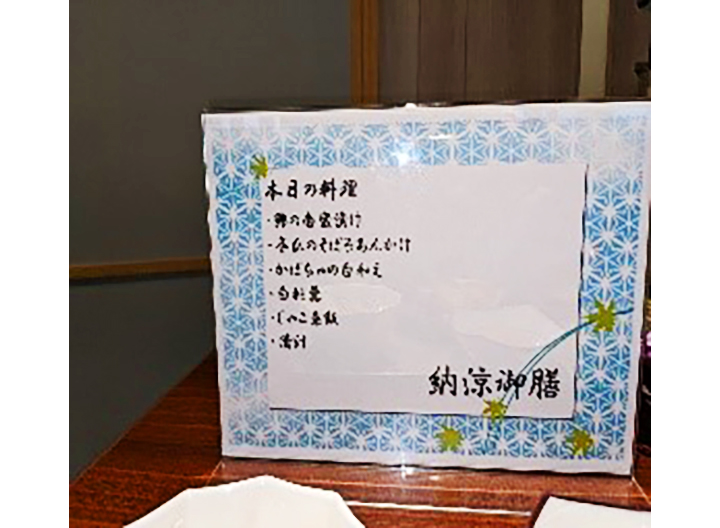 本日の料理
・鰆の南蛮漬け
・冬瓜のそぼろあんかけ
・かぼちゃの白和え
・白
・じゃこ
・清汁
納涼御膳